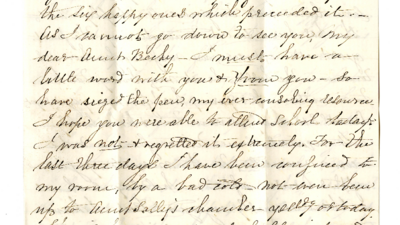 the six happy ones which preceded it. -
As I cannot go down to see you, my
dear Aunt Becky - I must have a
little word with you & from you - so
have siezed the pen, my ever consoling resource
I hope you were able to attend school to day
I was not & regretted it extremely. For the
last three days I have been confined to
my room, by a bad cold - not even been
up to Aunt Sally's chamber yesty or today